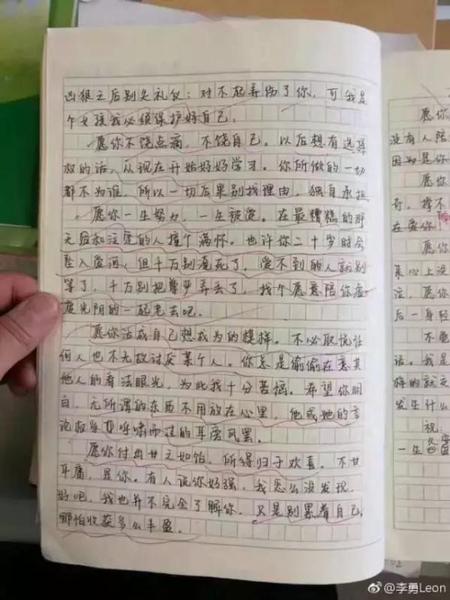 凶狠之后别失礼仪：对不起弄伤了你，可我是
个女孩我必须保护好自己。
愿你不饶点滴，不饶自己。以后想有选择
权的话，从现在开始好好学习。你所做的一切
都不为谁，所以一切后果别找理由，独自承担
愿你一生努力，一生被爱。在最糟糕的那
天给和注定的人撞个满怀。也许你二十岁时会
坠入爱河，但千万别爱死了，爱不到的人就别
等了，千万别把费弄丢了，找个愿意陪你虚
度光阴的一起老去吧。
愿你活成自己想成为的模样。不必取悦任
何人也不无故讨厌某个人。你总是偷偷在意其
他人的看法眼光，为此我十分苦恼。希望你明
白，无所谓的东西不用放在心里，他或她的言
论权当是呼啸而过的耳旁风罢。
愿你付出甘之如饴，所得归于欢喜。不甘
平庸，是你。有人说你好强，我怎么没发现，
好吧，我也并不完全了解你。只是别累着自己，
哪怕收获多么丰盈。
愿你
没有人陪
因为是你
愿你
奇，撑不
在爱你
愿你
真心上没
注，愿你
后一身轻
不要
话。我是
样的
发生什么
祝
一生
@李勇Leon